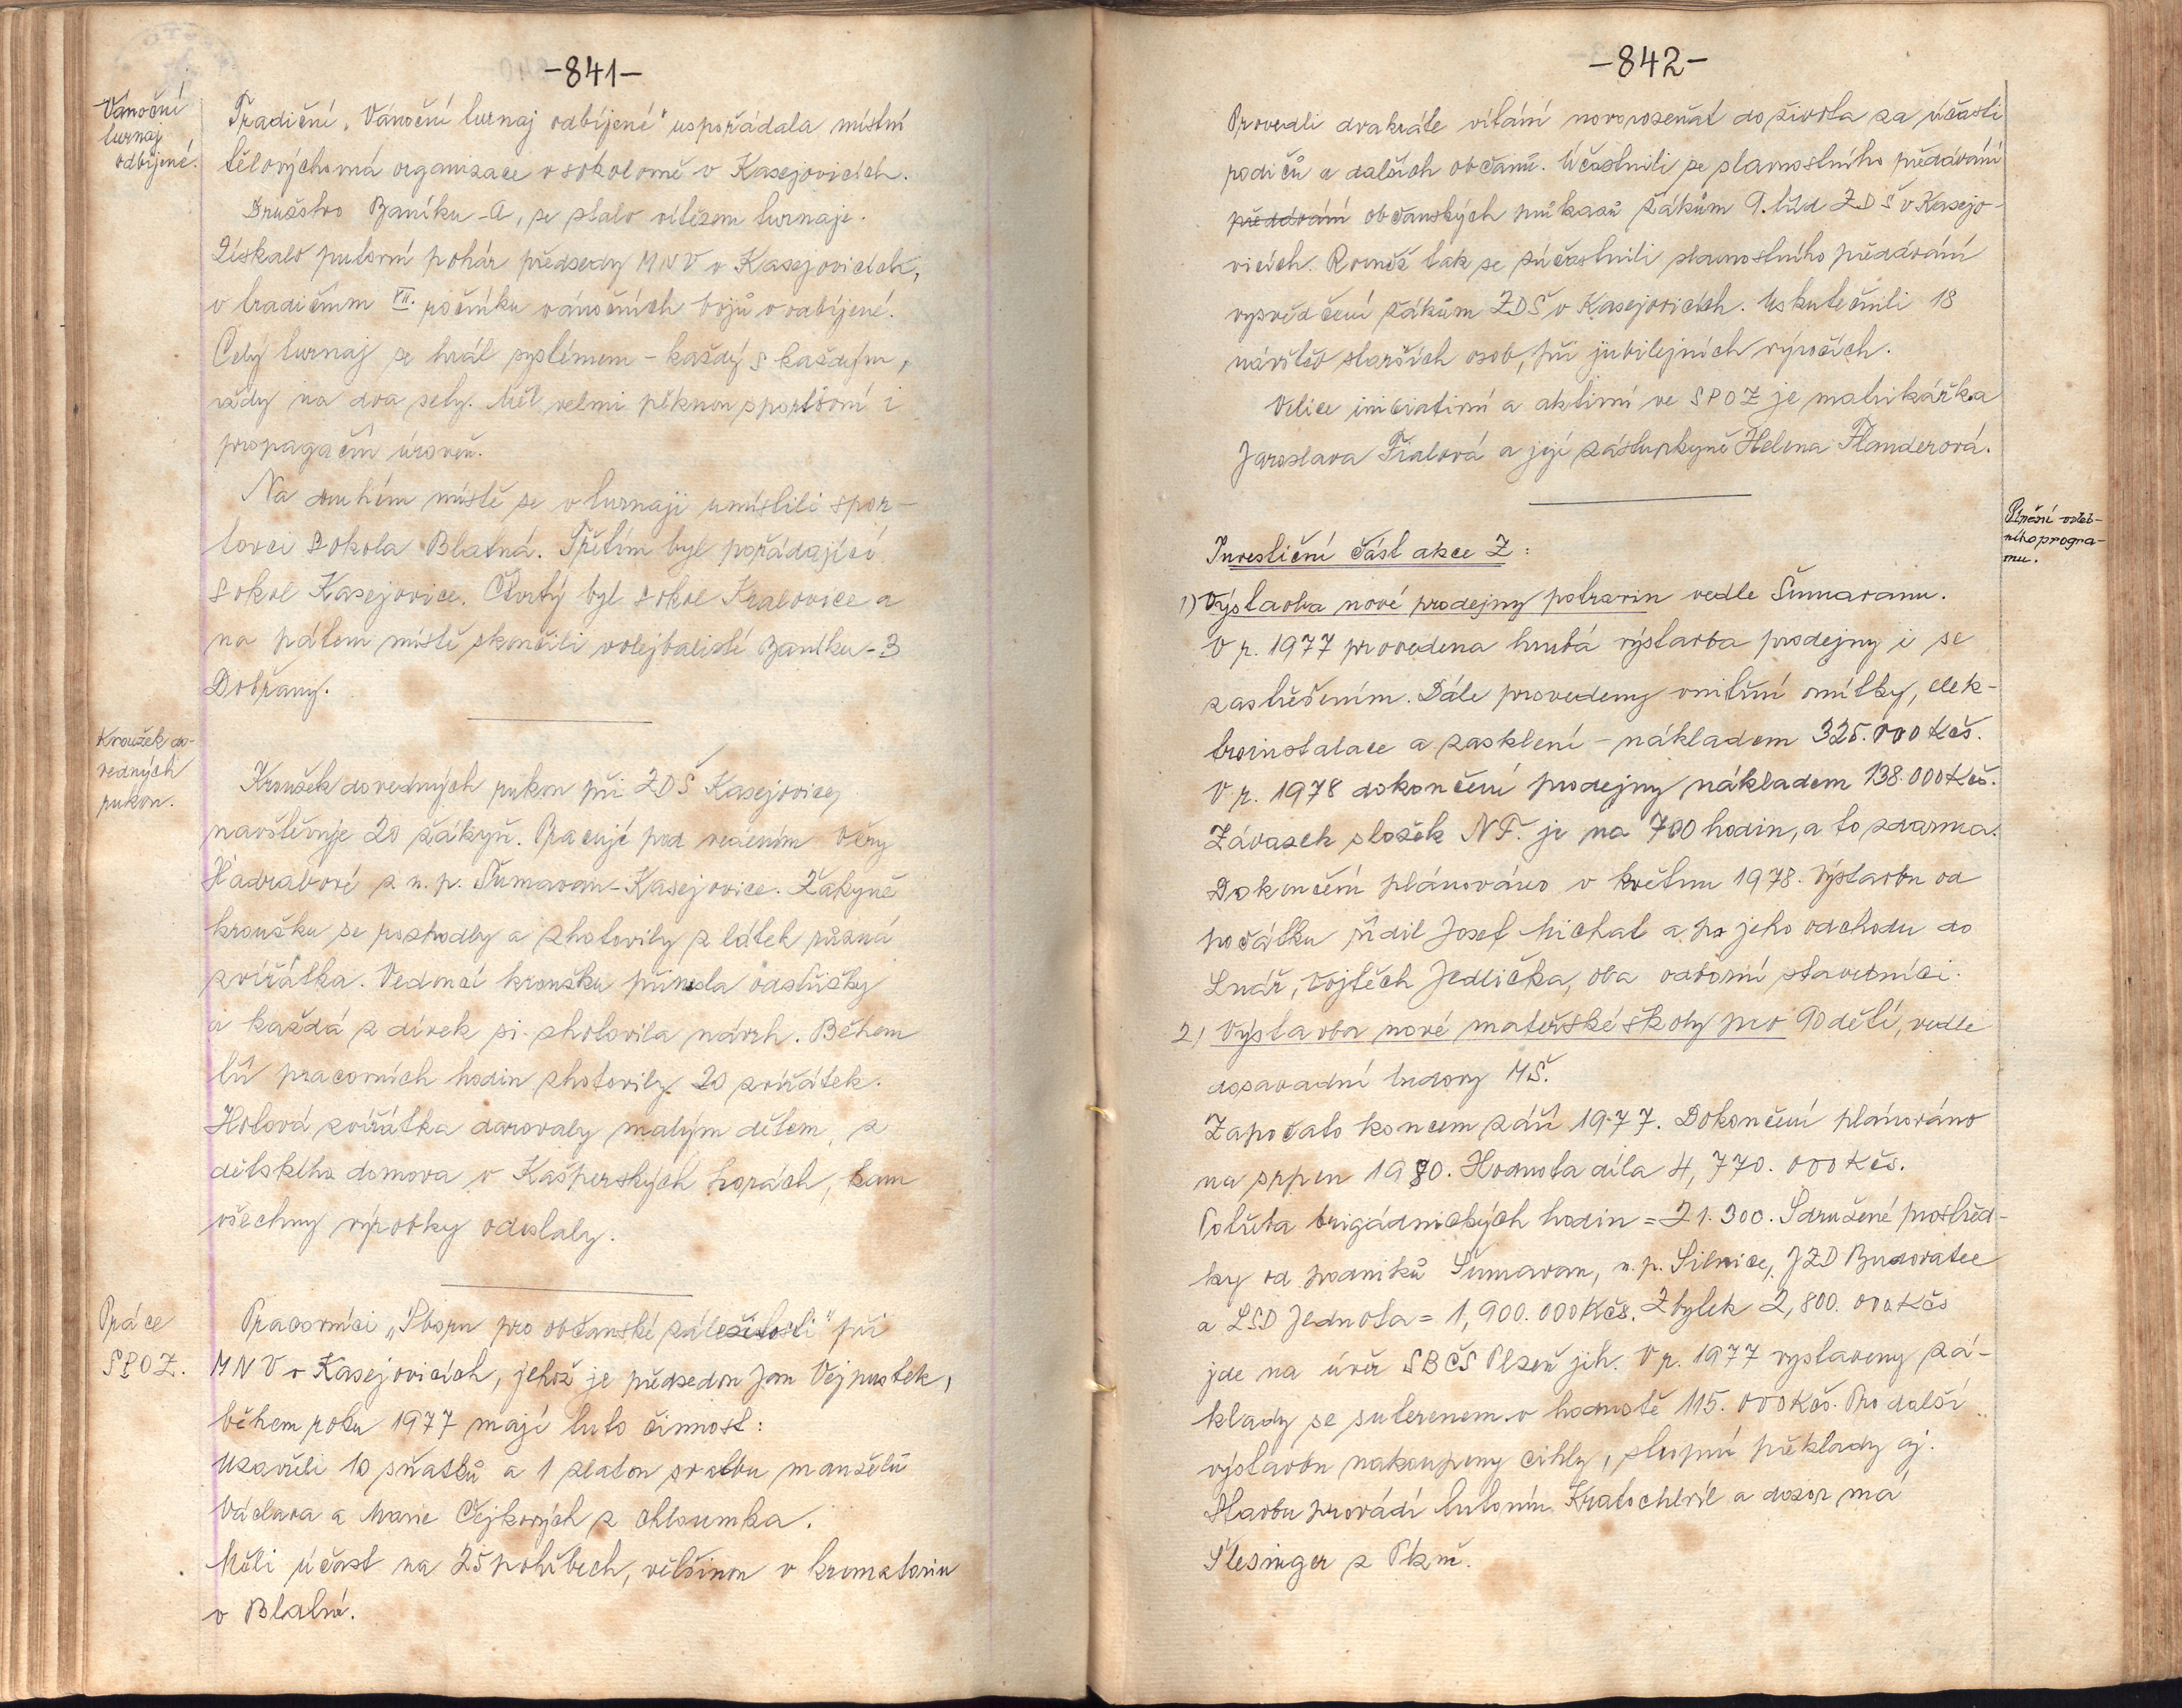 -841-
Vánoční
turnaj
odbíjené.
Tradiční „Vánoční turnaj odbíjené" uspořádala místní
tělovýchovná organizace v sokolovně v Kasejovicích.
Družstvo Baníku-A, se stalo vítězem turnaje.
Získalo putovní pohár předsedy MNV v Kasejovicích,
v tradičním VII. ročníku vánočních bojů v odbíjené.
Celý turnaj se hrál systémem - každý s každým,
vždy na dva sety. Měl velmi pěknou sportovní i
propagační úroveň.
Na druhém místě se v turnaji umístili spor-
tovci Sokola Blatná. Třetím byl pořádající
Sokol Kasejovice. Čtvrtý byl Sokol Kralovice a
na pátém místě skončili volejbalisté Baníku-B
Dobřany.
Kroužek do-
vedných
rukou.
Kroužek dovedných rukou při ZDŠ Kasejovice,
navštěvuje 20 žákyň. Pracují pod vedením Věry
Hadrabové z n. p. Šumavan-Kasejovice. Žákyně
kroužku se rozhodly a zhotovily z látek různá
zvířátka. Vedoucí kroužku přinesla odstřižky
a každá z dívek si zhotovila návrh. Během
tří pracovních hodin zhotovily 20 zvířátek.
Hotová zvířátka darovaly malým dětem, z
dětského domova v Kašperských horách, kam
všechny výrobky odeslaly.
Práce
SPOZ.
Pracovníci „Sboru pro občanské záležitosti" při
MNV v Kasejovicích, jehož je předsedou Jan Vejpustek,
během roku 1977 mají tuto činnost:
Uzavřeli 10 sňatků a 1 zlatou svatbu manželů
Václava a Marie Čejkových z Chloumka.
Měli účast na 25 pohřbech, většinou v krematoriu
v Blatné.
-842-
Provedli dvakráte vítání novorozeňat do života za účasti
rodičů a dalších občanů. Účastnili se slavnostního předávání
předávání občanských průkazů žákům 9. tříd ZDŠ v Kasejo-
vicích. Rovněž tak se zúčastnili slavnostního předávání
vysvědčení žákům ZDŠ v Kasejovicích. Uskutečnili 18
návštěv starších osob, při jubilejních výročích.
Velice iniciativní a aktivní ve SPOZ je matrikářka
Jaroslava Fialová a její zástupkyně Helena Flanderová.
Plnění voleb-
ního progra-
mu.
Investiční část akce Z:
1) Výstavba nové prodejny potravin vedle Šumavanu.
V r. 1977 provedena hrubá výstavba prodejny i se
zastřešením. Dále provedeny vnitřní omítky, elek-
troinstalace a zasklení - nákladem 325.000 Kčs.
V r. 1978 dokončení prodejny nákladem 138.000 Kčs.
Závazek složek NF. je na 700 hodin, a to zdarma.
Dokončení plánováno v květnu 1978. Výstavbu od
počátku řídil Josef Michal a po jeho odchodu do
Lnář, Vojtěch Jedlička, oba odborní stavebníci.
2) Výstavba nové mateřské školy pro 90 dětí, vedle
dosavadní budovy MŠ.
Započato koncem září 1977. Dokončení plánováno
na srpen 1980. Hodnota díla 4,770.000 Kčs.
Potřeba brigádnických hodin = 21.300. Sdružené prostřed-
ky od podniků Šumavan, n. p. Silnice, JZD Budovatel
a LSD Jednota = 1,900.000 Kčs. Zbytek 2,800.000 Kčs
jde na úvěr SBČS Plzeň jih. V r. 1977 vystaveny zá-
klady se suterenem v hodnotě 115.000 Kčs. Pro další
výstavbu nakoupeny cihly, stropní překlady aj.
Stavbu provádí Antonín Kratochvíl a dozor má
Šlesinger z Plzně.